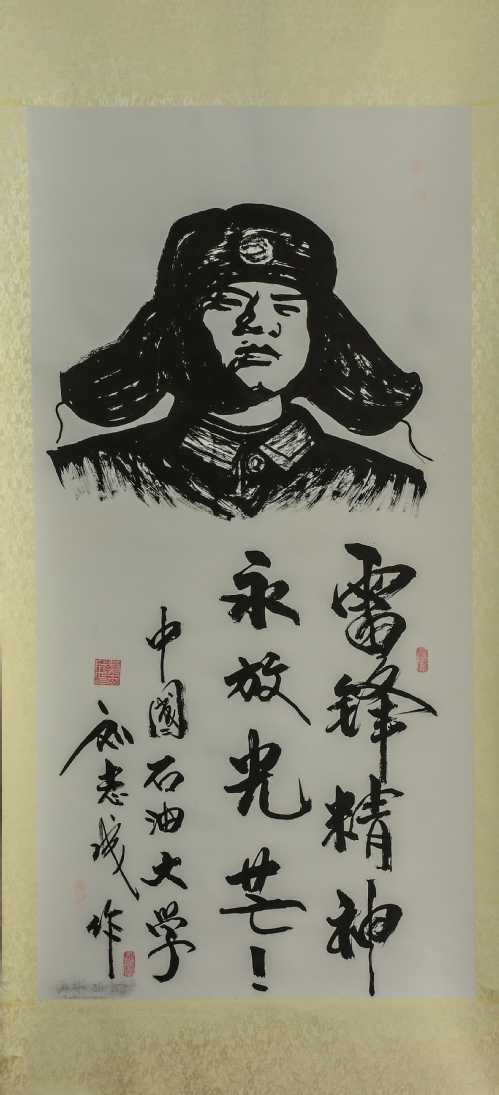 雷锋精神
永放光芒！
中國石油大学
志成作